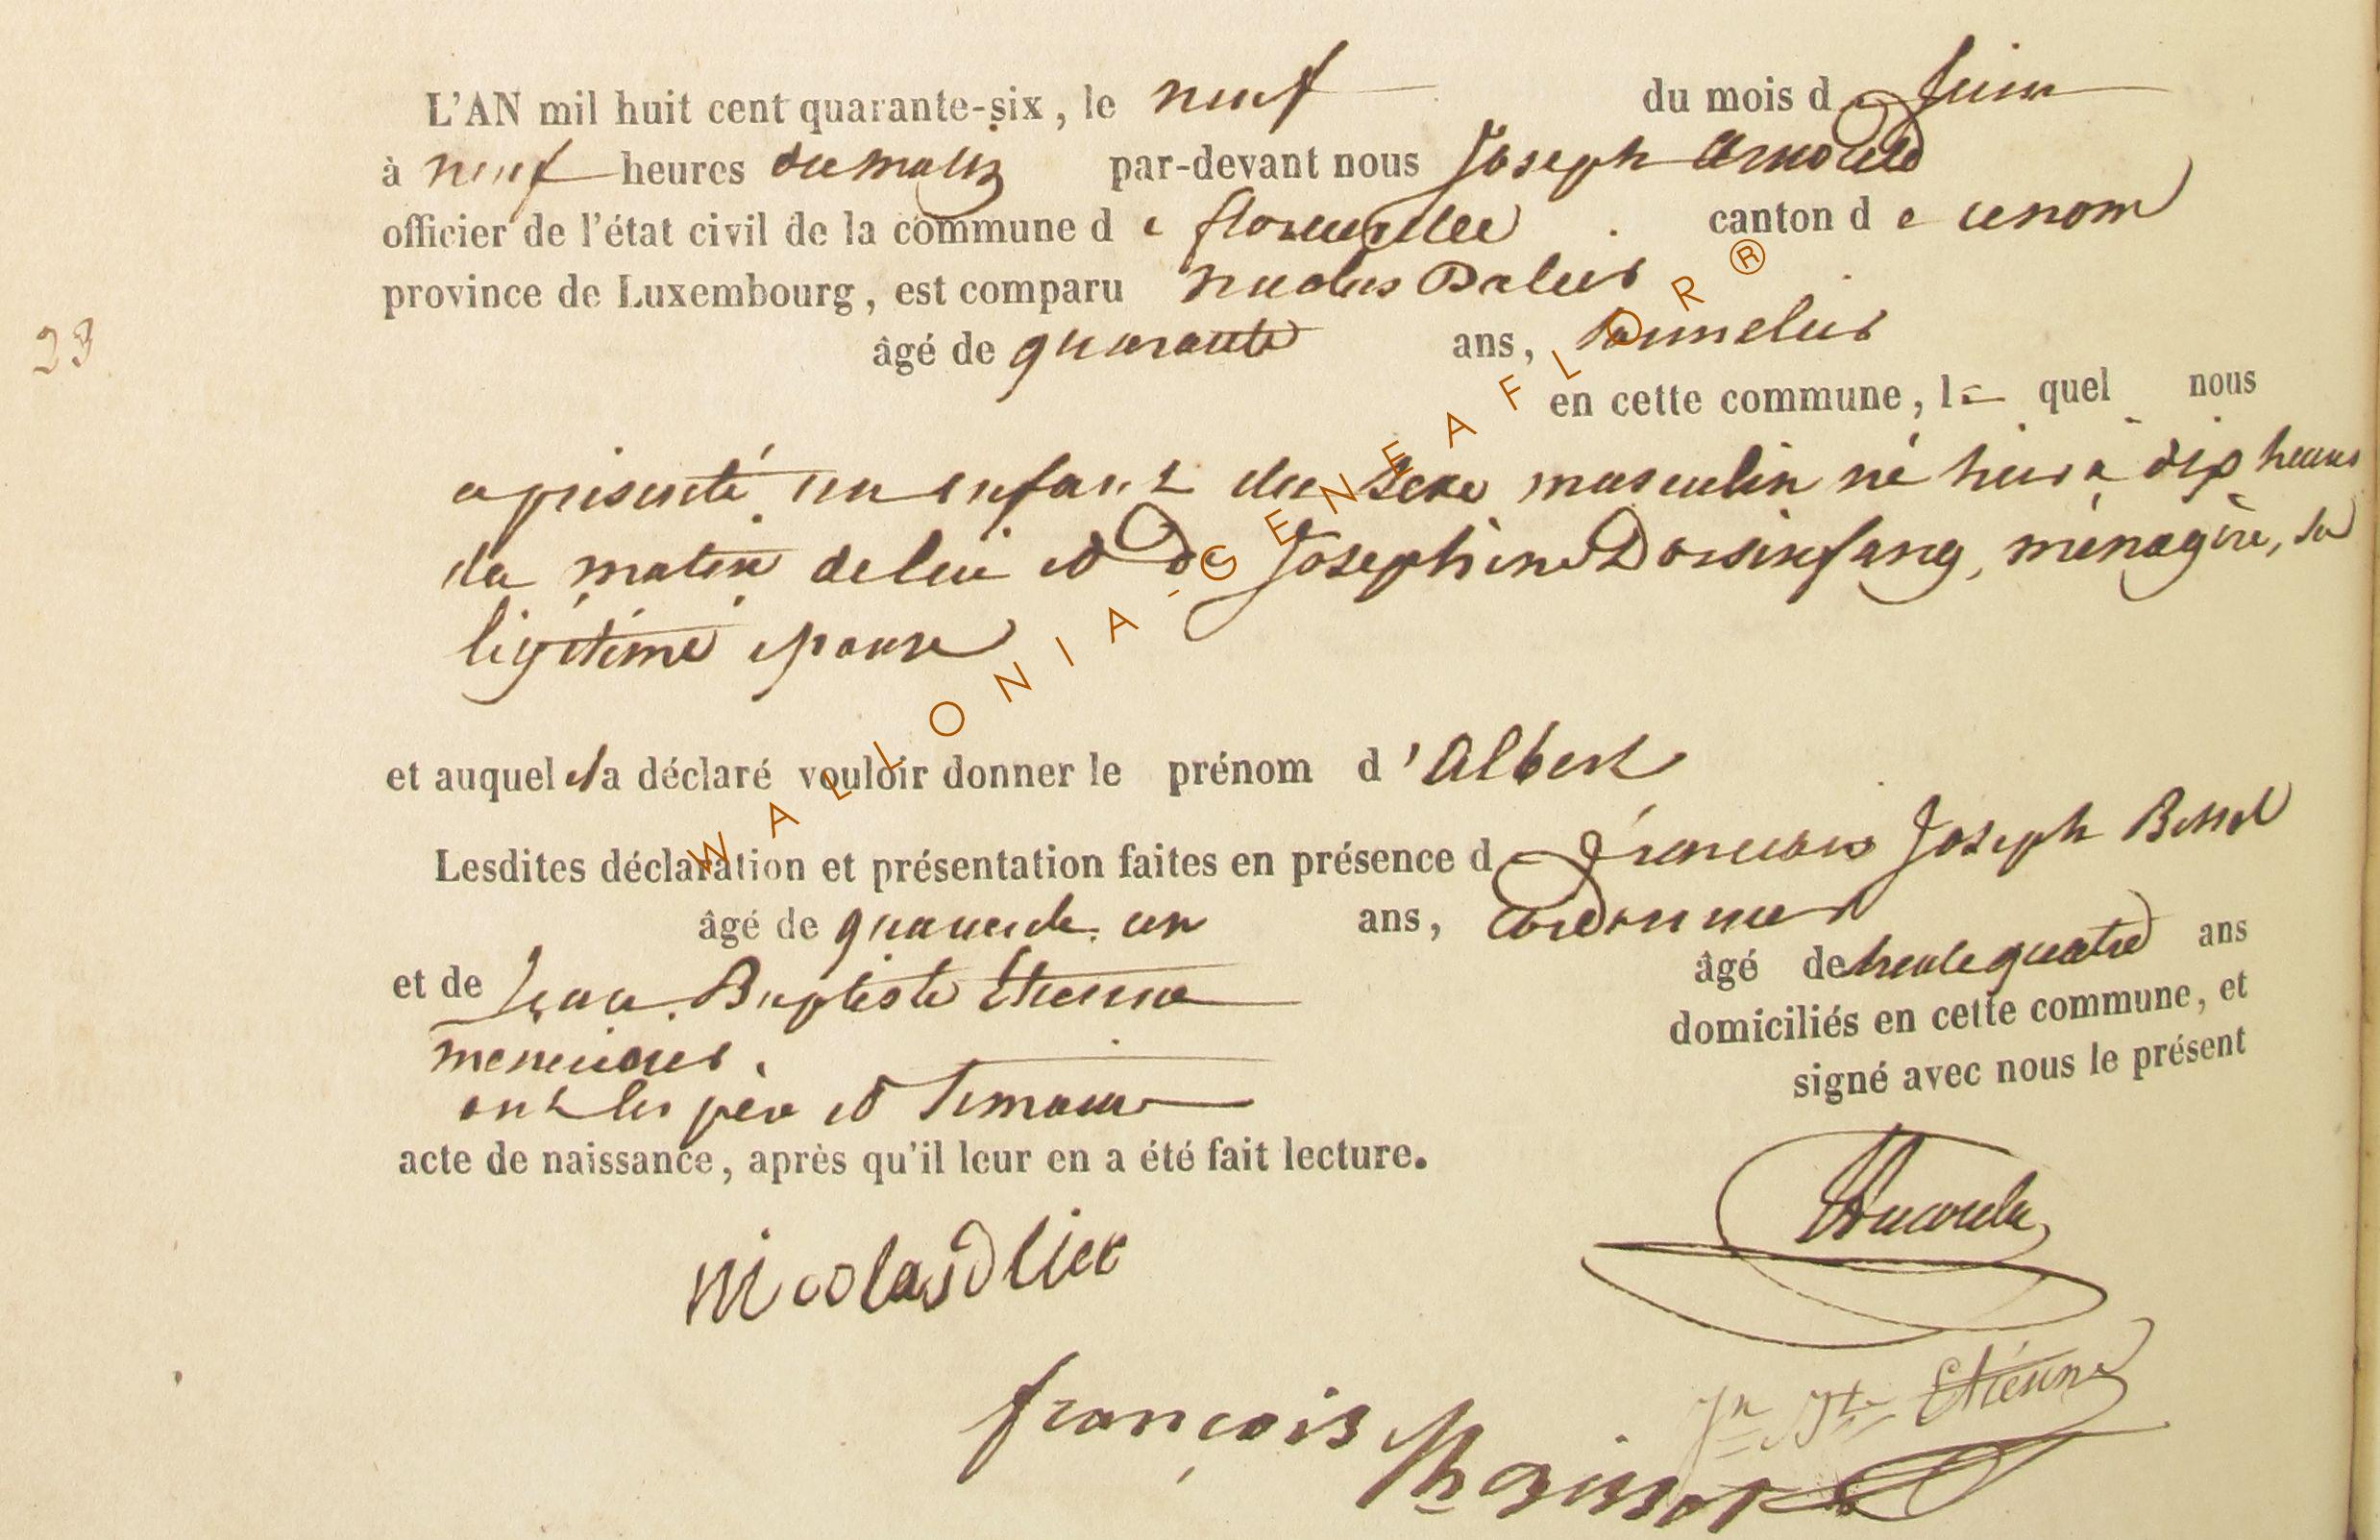 L'AN mil huit cent quarante-six, le neuf du mois de Juin
à neuf heures du matin par-devant nous Joseph Arnould
officier de l'état civil de la commune de florenville canton de ce nom
province de Luxembourg, est comparu Nicolas
23
âgé de quarante ans, tonnelier
en cette commune, le quel nous
a présenté un enfant du sexe masculin né hier à dix heures
du matin de lui et de Josephine Dorsinfang, ménagère, sa
légitime épouse
et auquel il a déclaré vouloir donner le prénom d'Albert
Lesdites déclaration et présentation faites en présence de françois Joseph
âgé de quarante un ans, cordonnier
et de Jean Baptiste Etienne âgé de trente quatre ans
menuisier. domiciliés en cette commune, et
ont les père et témoins signé avec nous le présent
acte de naissance, après qu'il leur en a été fait lecture.
Nicolas
françois
Jn Bte Etienne
WALLONIA-GENEAFLOR®